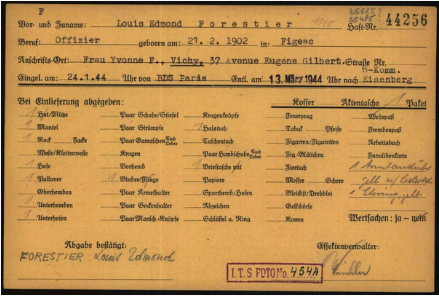 F
Vor- und Zuname: Louis Edmond Forestier Haft-Nr. 44256
Beruf: Offizier geboren am: 21. 2. 1902 in Figeac
Anschrifts-Ort: Frau Yvonne F., Vichy, 37 Avenue Eugene Gilbert. Straße Nr.
Eingel. am 24.1.44 Uhr von BDS Paris Entl. am 13. März 1944 Uhr nach Eisenberg
Bei Einlieferung abgegeben: Koffer Aktentasche 1 Paket
1 Hut/Mütze Paar Schuhe/Stiefel Kragenknöpfe Webpaß
1 Mantel Paar Strümpfe 1 Halstuch Tabak Pfeife Fremdenpaß
1 Rock Jacke Paar Gamaschen Taschentuch Zigarren/Zigaretten Arbeitsbuch
Weste/Kletterweste Kragen Paar Handschuhe Zig.-Blättchen Invalidenkarte
1 Hose Vorhemd 1 Brieftasche Feuerzeug 1 Armbanduhr
1 Pullover Binder/Fliege Papiere Messer Schere
Oberhemden Paar Ärmelhalter Sporthemd/Hosen Bleistift/Drehblei 1 Ehering
1 Unterhemden Paar Sockenhalter Abzeichen Geldbörse
1 Unterhosen Paar Mansch.-Knöpfe Schlüssel a. Ring Kamm Wertsachen: ja – nein
Abgabe bestätigt: Effektenverwalter:
FORESTIER Louis Edmond
I.T.S. FOTO No. 454A